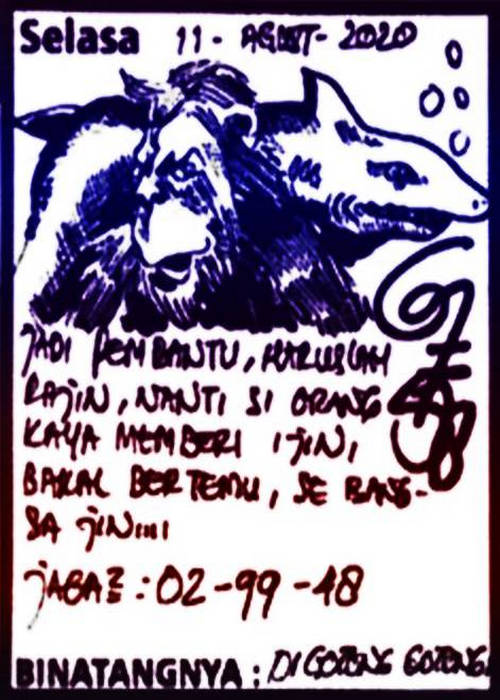 Selasa 11 - AGUST - 2020
JADI PEMBANTU, HARUSLAH
RAJIN, NANTI SI ORANG
KAYA MEMBERI IJIN,
BAKAL BERTEMU, SE BANG-
SA JIN....
JAGA2 : 02 - 99 - 48
BINATANGNYA : DI GOTONG GOTONG.